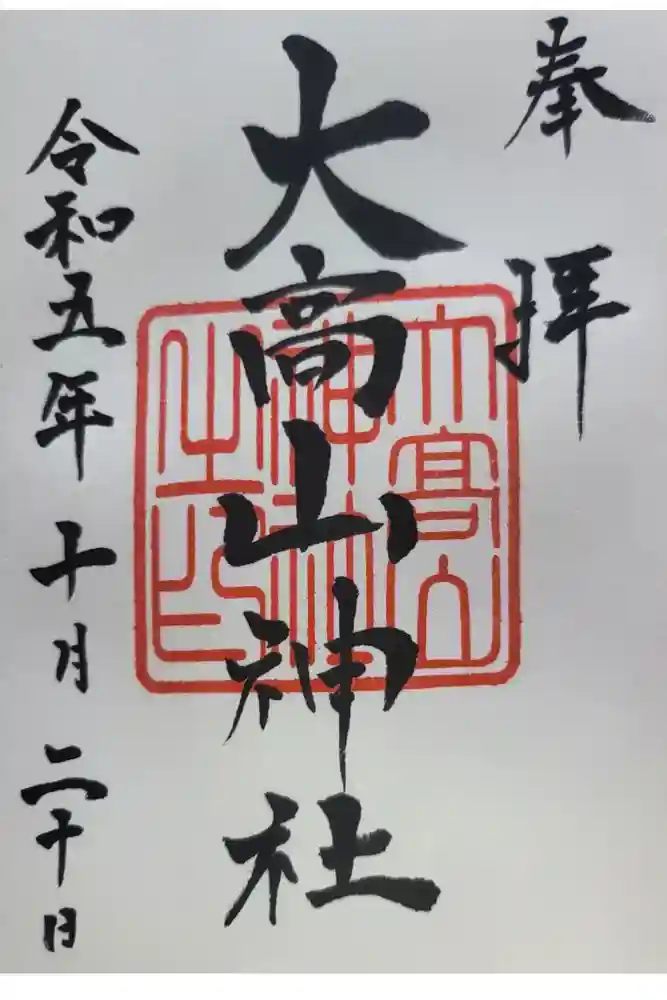 奉拝
大高山神社
大高山神社之印
令和五年十月二十日